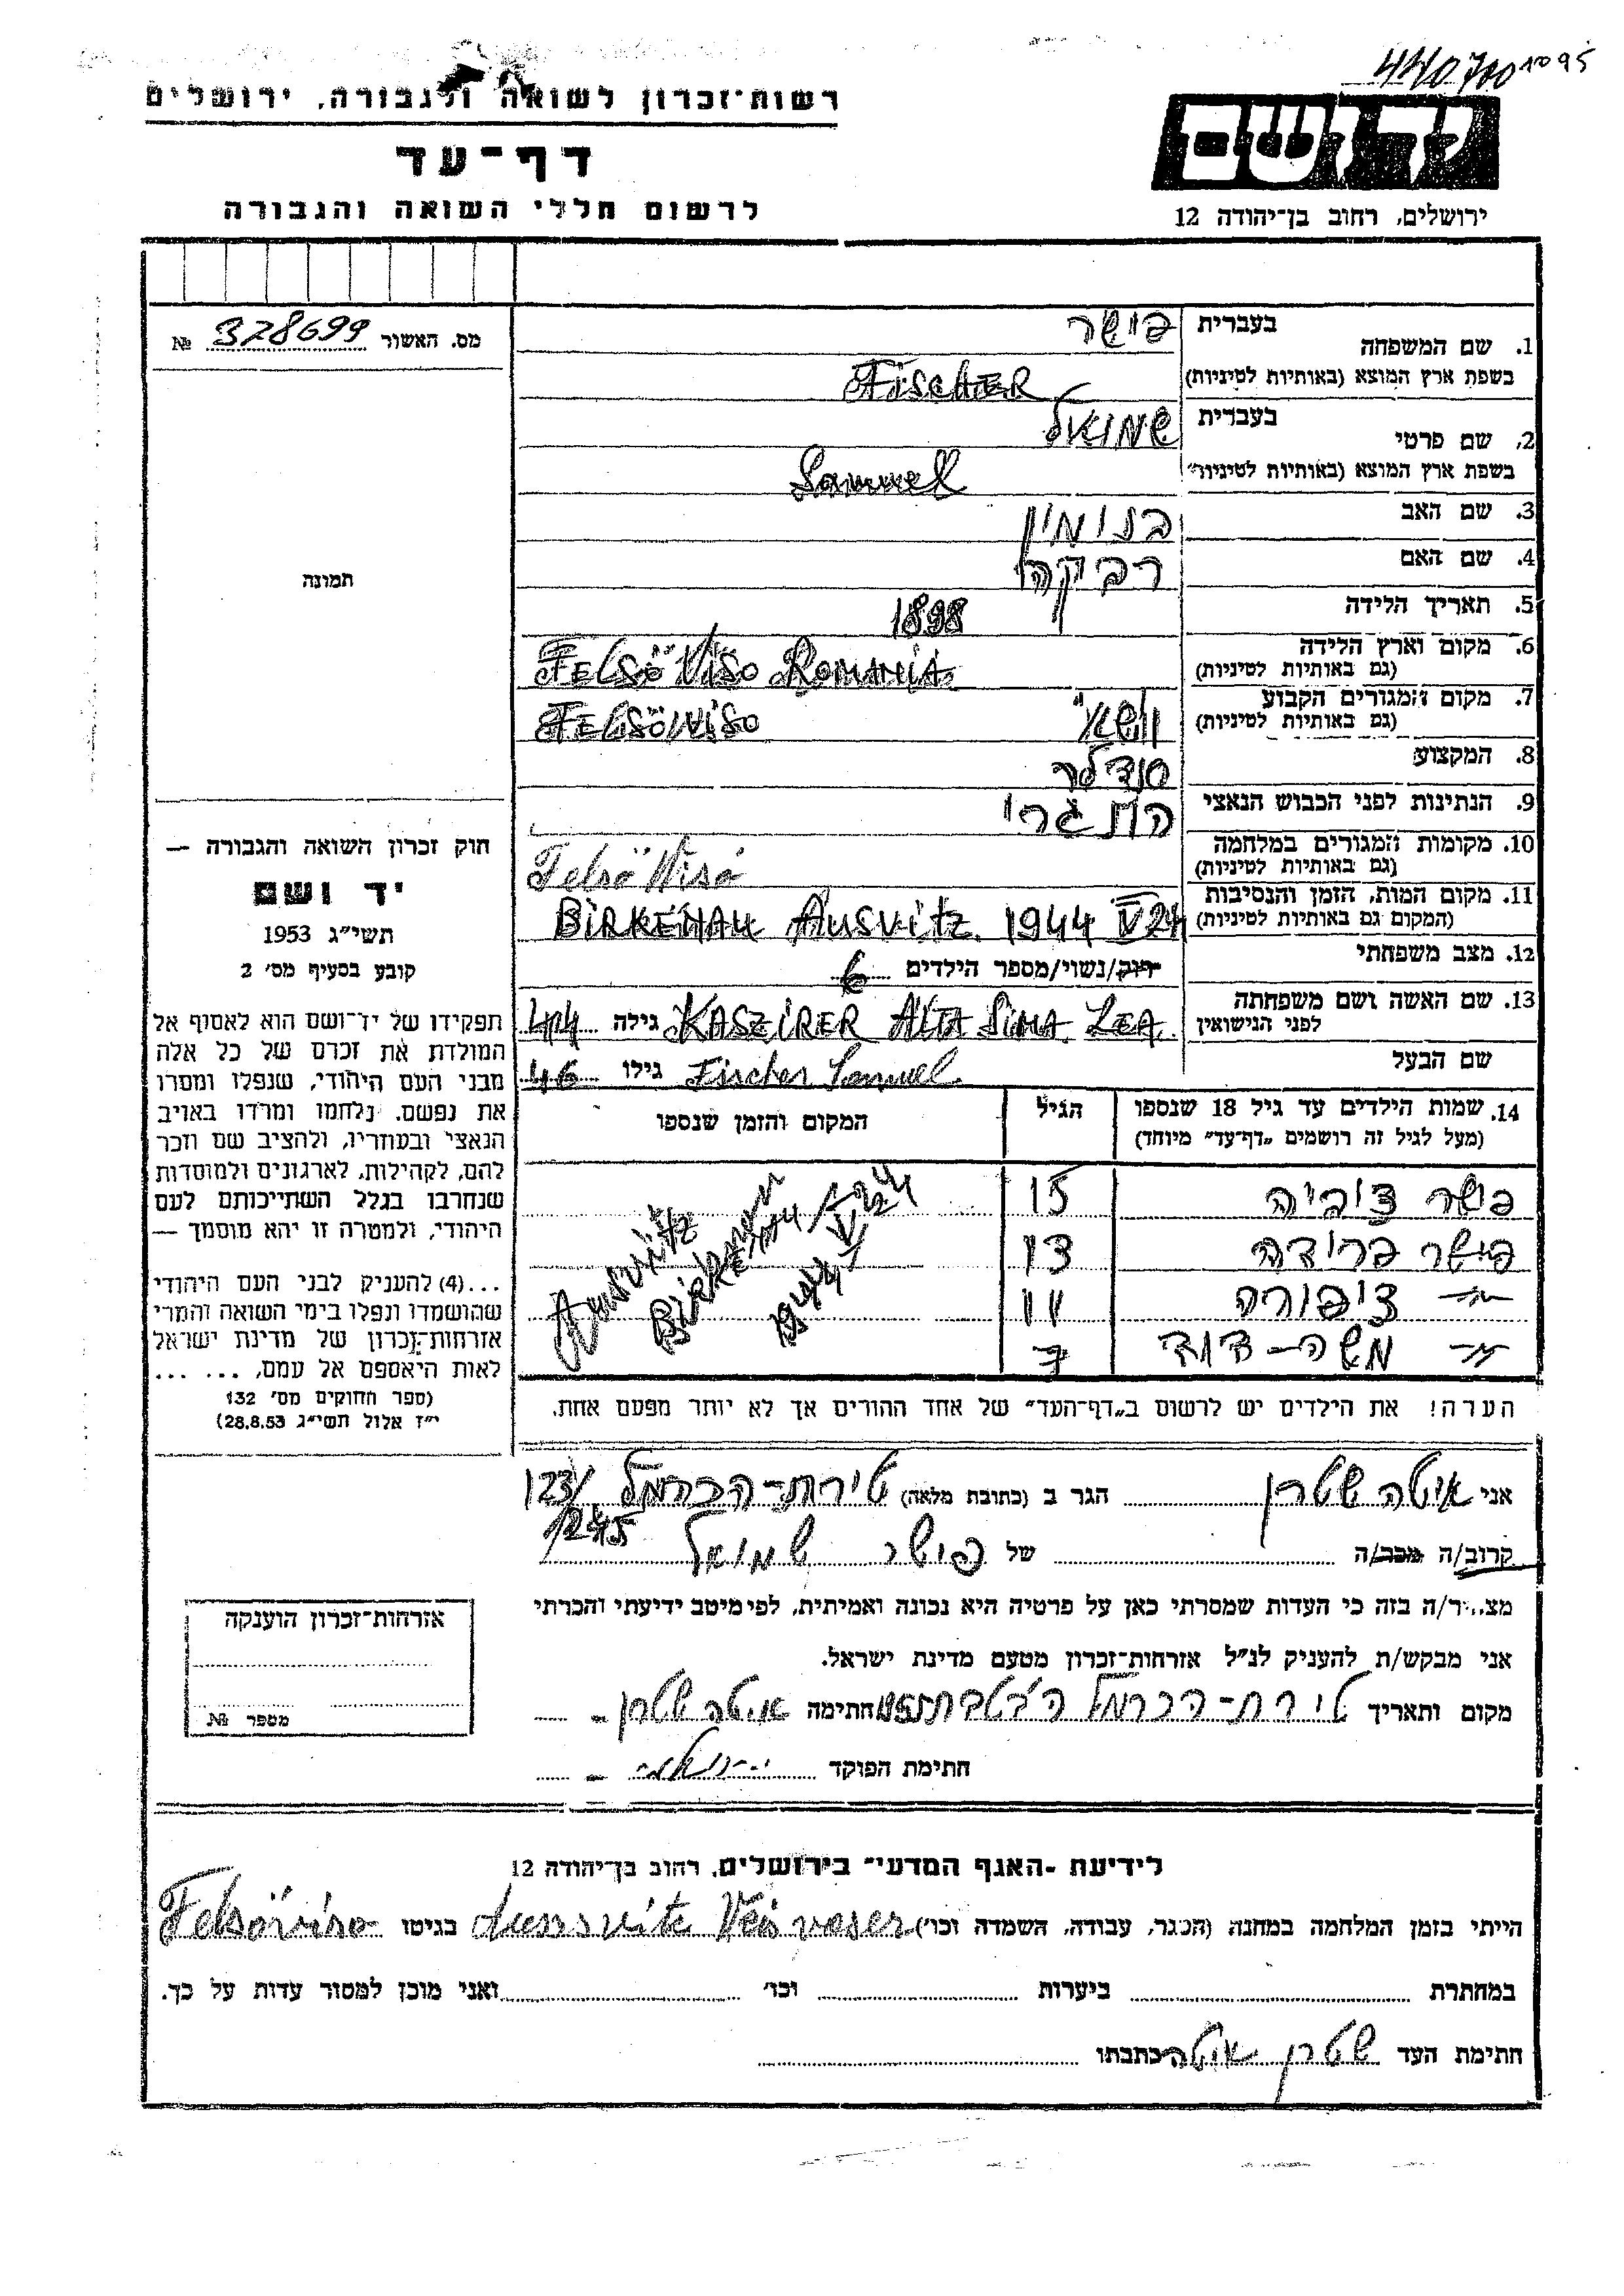 440700 1095
רשות־זכרון לשואה ולגבורה, ירושלים
דף־עד
לרשום חללי השואה והגבורה
יד ושם
ירושלים, רחוב בן־יהודה 12
מס. האשור 328699 №
תמונה
1. שם המשפחה
בעברית פישר
בשפת ארץ המוצא (באותיות לטיניות) FiscHER
2. שם פרטי
בעברית שמואל
בשפת ארץ המוצא (באותיות לטיניות) Samuel
3. שם האב בנימין
4. שם האם רבקה
5. תאריך הלידה 1898
6. מקום וארץ הלידה
(גם באותיות לטיניות) FELSÖ VISO ROMANIA
7. מקום המגורים הקבוע
(גם באותיות לטיניות) FELSÖVISO
8. המקצוע סנדלר
9. הנתינות לפני הכבוש הנאצי הונגרי
10. מקומות המגורים במלחמה
(גם באותיות לטיניות) Felsö Visó
11. מקום המות, הזמן והנסיבות
(המקום גם באותיות לטיניות) BIRKENAU AUSVITZ 1944 V 24
12. מצב משפחתי רווק/נשוי/מספר הילדים 6
13. שם האשה ושם משפחתה
לפני הנישואין KASZIRER ALTA SIMA LEA גילה 44
שם הבעל Fischer Samuel גילו 46
14. שמות הילדים עד גיל 18 שנספו הגיל המקום והזמן שנספו
(מעל לגיל זה רושמים „דף־עד" מיוחד)
פישר צביה 15
פישר פרידה 13
–״– ציפורה 11
–״– משה-דוד 7
Ausvitz
Birkenau
1944 V 24
הערה! את הילדים יש לרשום ב„דף־העד" של אחד ההורים אך לא יותר מפעם אחת.
חוק זכרון השואה והגבורה —
יד ושם
תשי"ג 1953
קובע בסעיף מס׳ 2
תפקידו של יד־ושם הוא לאסוף אל
המולדת את זכרם של כל אלה
מבני העם היהודי, שנפלו ומסרו
את נפשם, נלחמו ומרדו באויב
הנאצי ובעוזריו, ולהציב שם וזכר
להם, לקהילות, לארגונים ולמוסדות
שנחרבו בגלל השתייכותם לעם
היהודי, ולמטרה זו יהא מוסמך —
...(4) להעניק לבני העם היהודי
שהושמדו ונפלו בימי השואה והמרי
אזרחות־זכרון של מדינת ישראל
לאות היאספם אל עמם, ... ...
(ספר החוקים מס׳ 132
י"ז אלול תשי"ג 28.8.53)
אני איטה שטרן הגר ב (כתובת מלאה) טירת-הכרמל 123/
1245
קרוב/ה מכר/ה של פישר שמואל
מצהיר/ה בזה כי העדות שמסרתי כאן על פרטיה היא נכונה ואמיתית, לפי מיטב ידיעתי והכרתי
אני מבקש/ת להעניק לנ"ל אזרחות־זכרון מטעם מדינת ישראל.
מקום ותאריך טירת-הכרמל חתימה איטה שטרן
חתימת הפוקד
אזרחות־זכרון הוענקה
מספר №
לידיעת ״האגף המדעי״ בירושלים, רחוב בן־יהודה 12
הייתי בזמן המלחמה במחנה (הסגר, עבודה, השמדה וכו׳) בגיטו Felsöviso
במחתרת ביערות וכו׳ ואני מוכן למסור עדות על כך.
חתימת העד שטרן איטה כתבתו